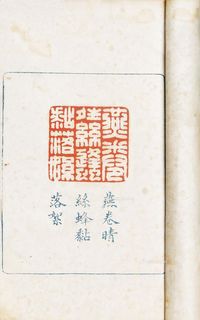 燕卷
晴絲蜂
黏落絮
燕卷晴
絲蜂黏
落絮